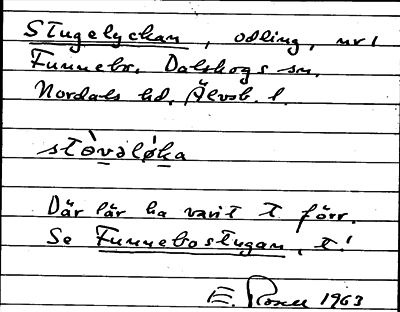 Stugelyckan, odling, nr 1
Funnebo, Dalskogs sn,
Nordals hd, Älvsb. l.
stòvəlø̀ka
Där lär ha varit t förr.
Se Funnebostugan, t!
E. Rosell 1963